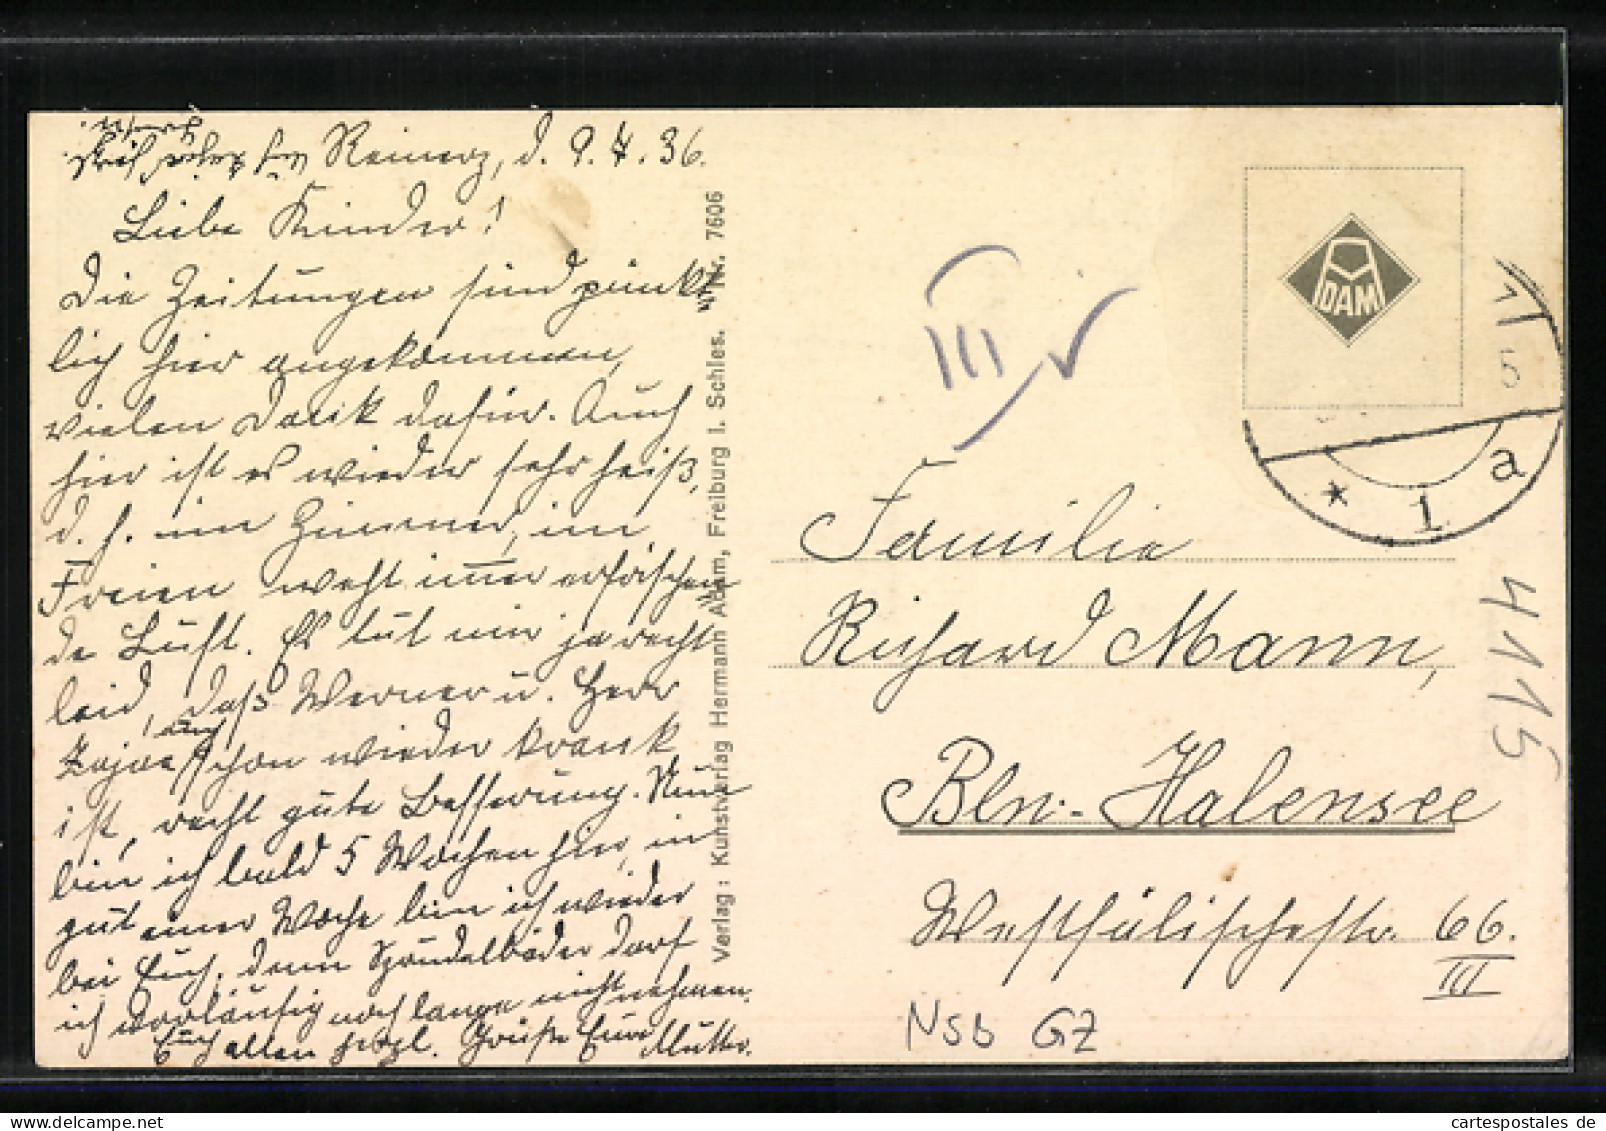 Reinerz, d. 9.7.36.
Liebe Kinder!
Die Zeitungen sind pünkt-
lich hier angekommen,
vielen Dank dafür. Auch
hier ist es wieder sehr heiß,
d. h. im Zimmer, im
Freien weht imm erfrischen-
de Luft. Es tut mir ja recht
leid, daß Werner u. Herr
auch schon wieder krank
ist, recht gute Besserung. Nun
bin ich bald 5 Wochen hier, in
gut einer Woche bin ich wieder
bei Euch, denn Sprudelbäder darf
ich vorläufig noch lange nicht nehmen.
Euch allen herzl. Grüße Eure Mutter.
Verlag: Kunstverlag Hermann Adam, Freiburg i. Schles. Nr. 7606
DAM
III
* 1 a
Familie
Richard Mann,
Bln.-Halensee
Westfälischestr. 66.
III
4115
NSb GZ
cartespostales de